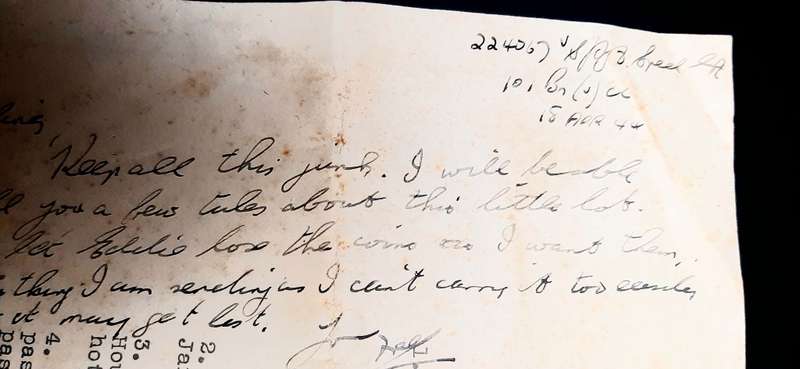 224067
101
18 APR 44
ling
Keep all this junk. I will be able
ll you a few tales about this little lot.
let Eddie lose the coins as I want them,
thing I am sending as I can't carry it too easily
it may get lost.
2.
Ja
3.
Hou
not
4.
pas
pas